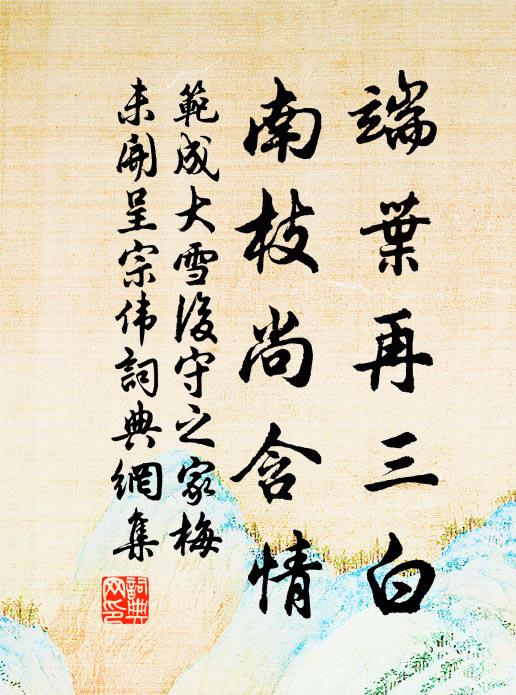 端葉再三白
南枝尚含情
範成大雪後守之家梅
未開呈宗伟詞典網集
詞典網印